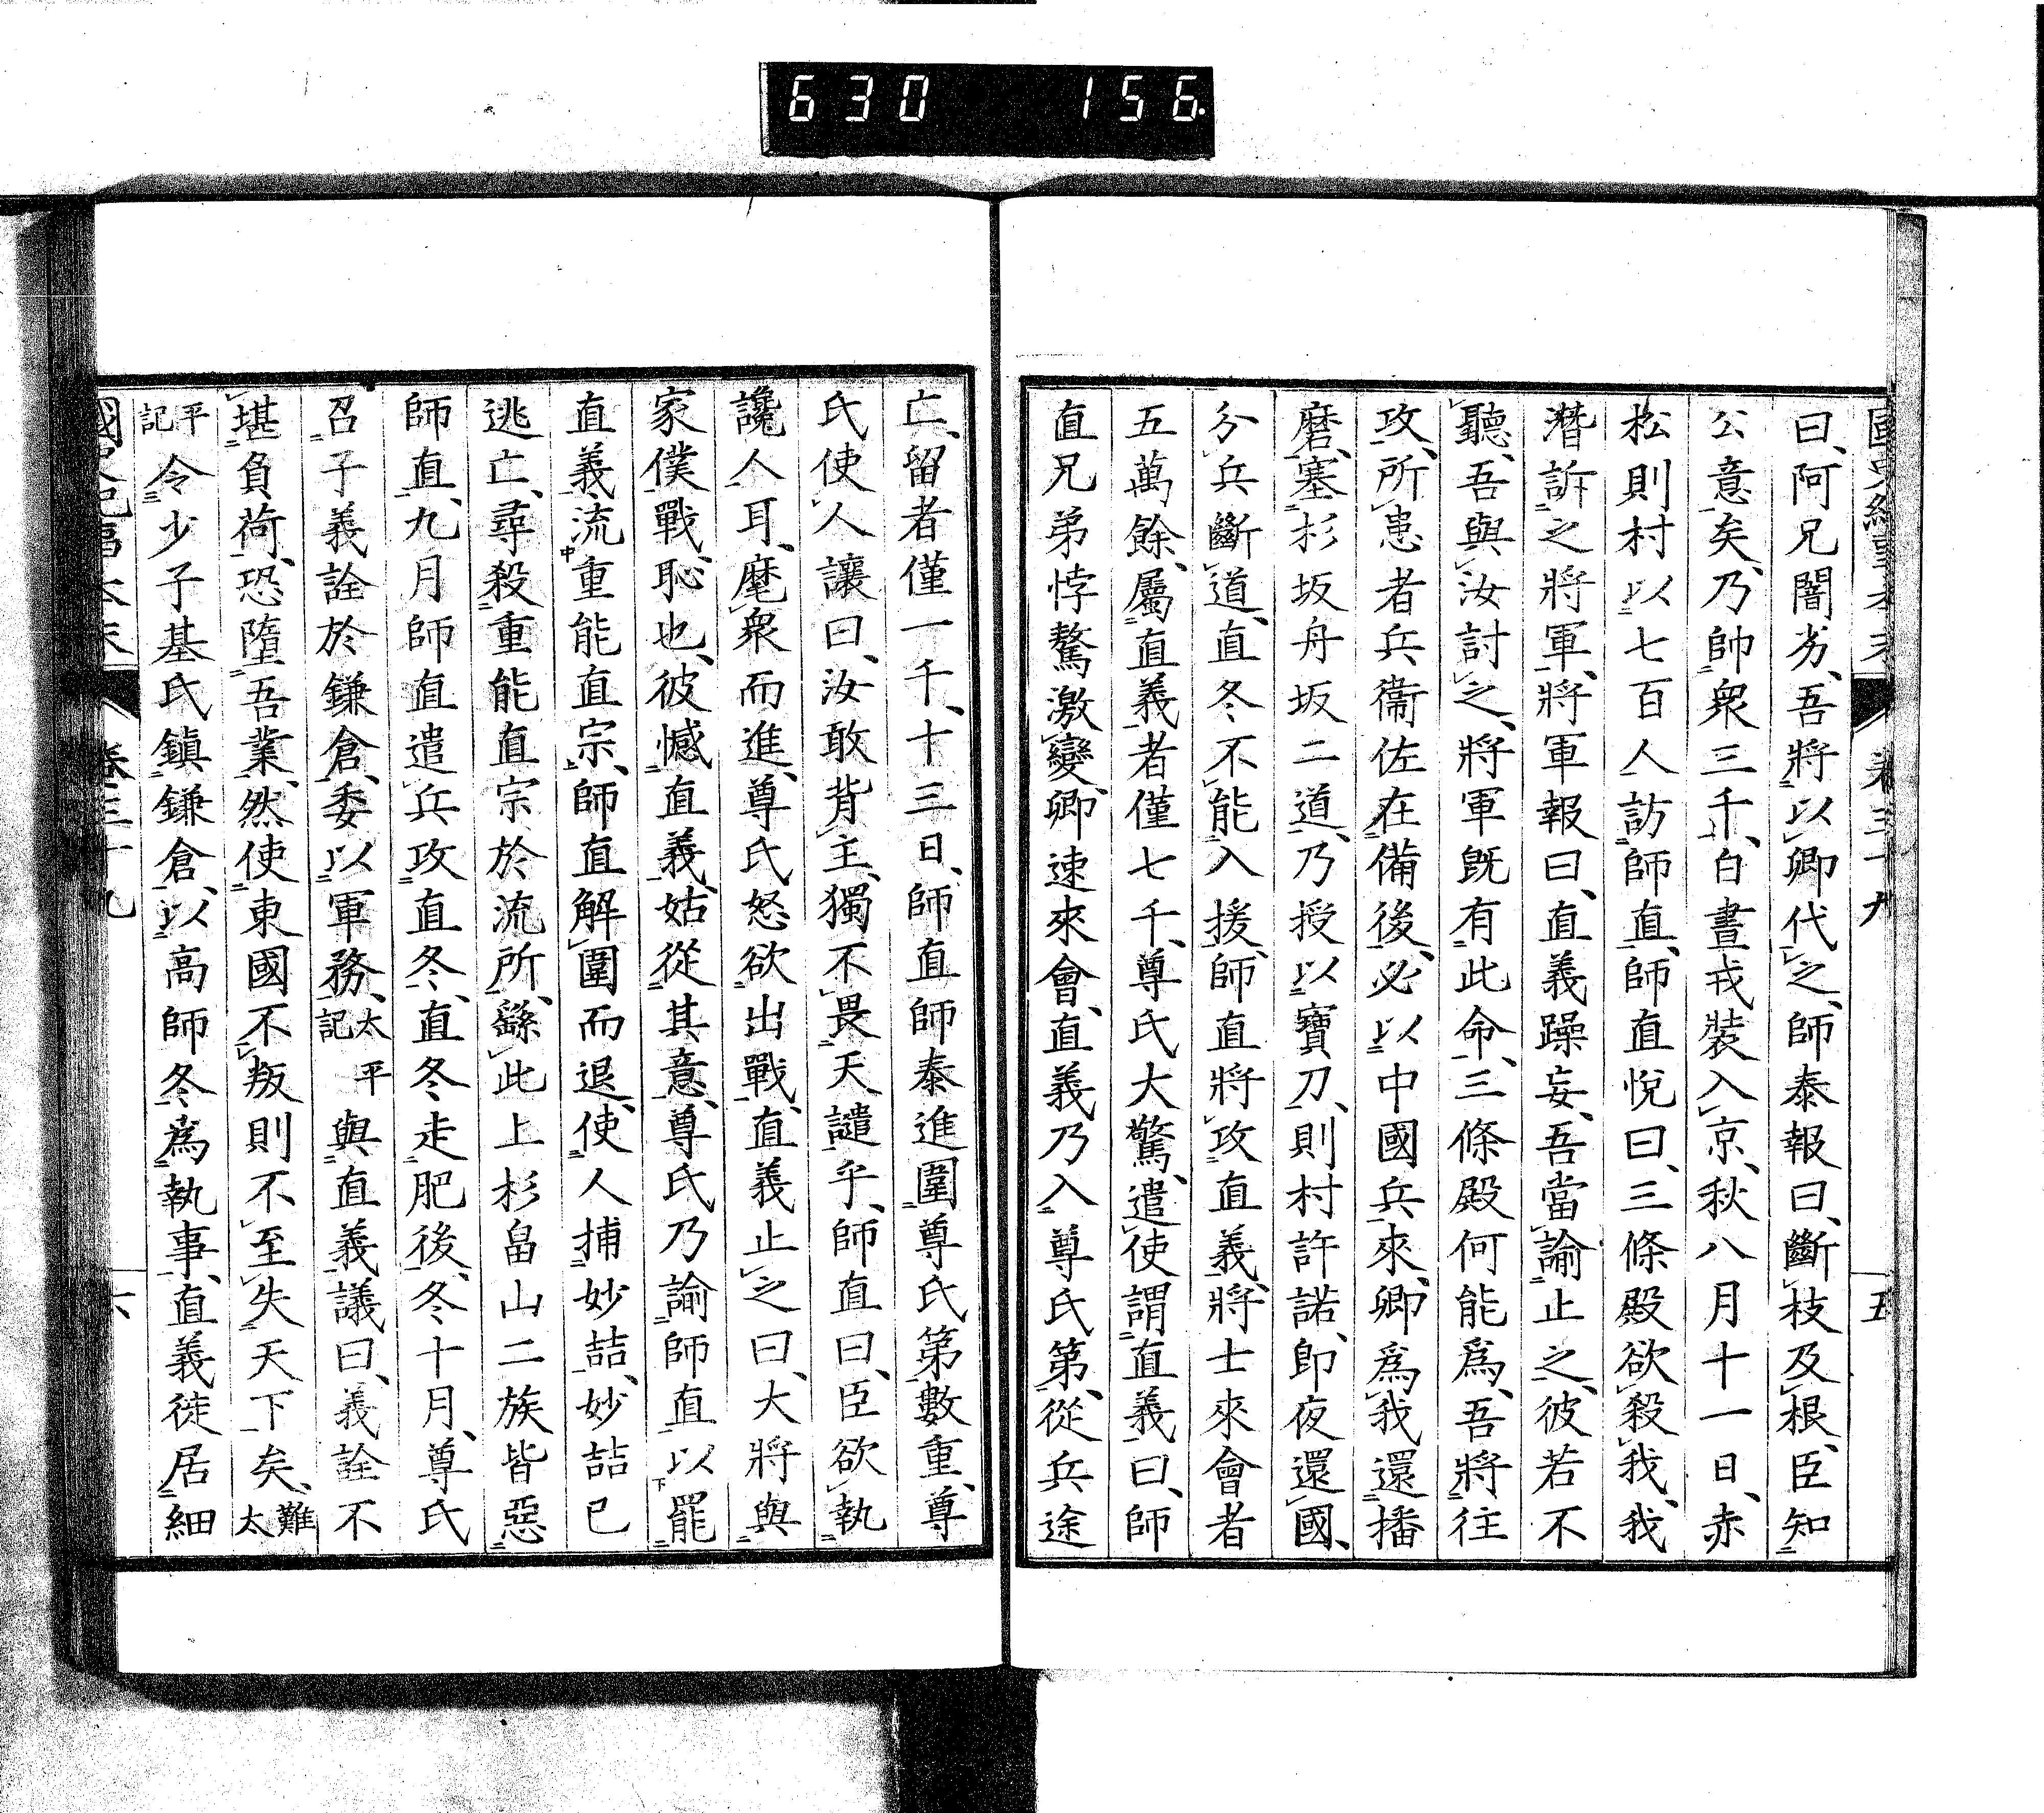 630 156
曰、阿兄闇劣、吾將以卿代之、師泰報曰、斷枝及根、臣知
公意矣、乃帥衆三千、白晝戎裝入京、秋八月十一日、赤
松則村以七百人訪師直、師直悅曰、三條殿欲殺我、我
潛訴之將軍、將軍報曰、直義躁妄、吾當諭止之、彼若不
聽、吾與汝討之、將軍既有此命、三條殿何能爲、吾將往
攻、所患者兵衞佐在備後、必以中國兵來、卿爲我還播
磨、塞杉坂舟坂二道、乃授以寶刀、則村許諾、卽夜還國、
分兵斷道、直冬不能入援、師直將攻直義、將士來會者
五萬餘、屬直義者僅七千、尊氏大驚、遣使謂直義曰、師
直兄弟悖驁激變、卿速來會、直義乃入尊氏第、從兵途
亡、留者僅一千、十三日、師直師泰進圍尊氏第數重、尊
氏使人讓曰、汝敢背主、獨不畏天譴乎、師直曰、臣欲執
讒人耳、麾衆而進、尊氏怒欲出戰、直義止之曰、大將與
家僕戰、恥也、彼憾直義、姑從其意、尊氏乃諭師直以罷
直義流重能直宗、師直解圍而退、使人捕妙喆、妙喆已
逃亡、尋殺重能直宗於流所、繇此上杉畠山二族皆惡
師直、九月師直遣兵攻直冬、直冬走肥後、冬十月、尊氏
召子義詮於鎌倉、委以軍務、太平記與直義議曰、義詮不
堪負荷、恐墮吾業、然使東國不叛則不至失天下矣、難太
平記令少子基氏鎮鎌倉、以高師冬爲執事、直義徙居細
國史紀事本末 卷三十九 六